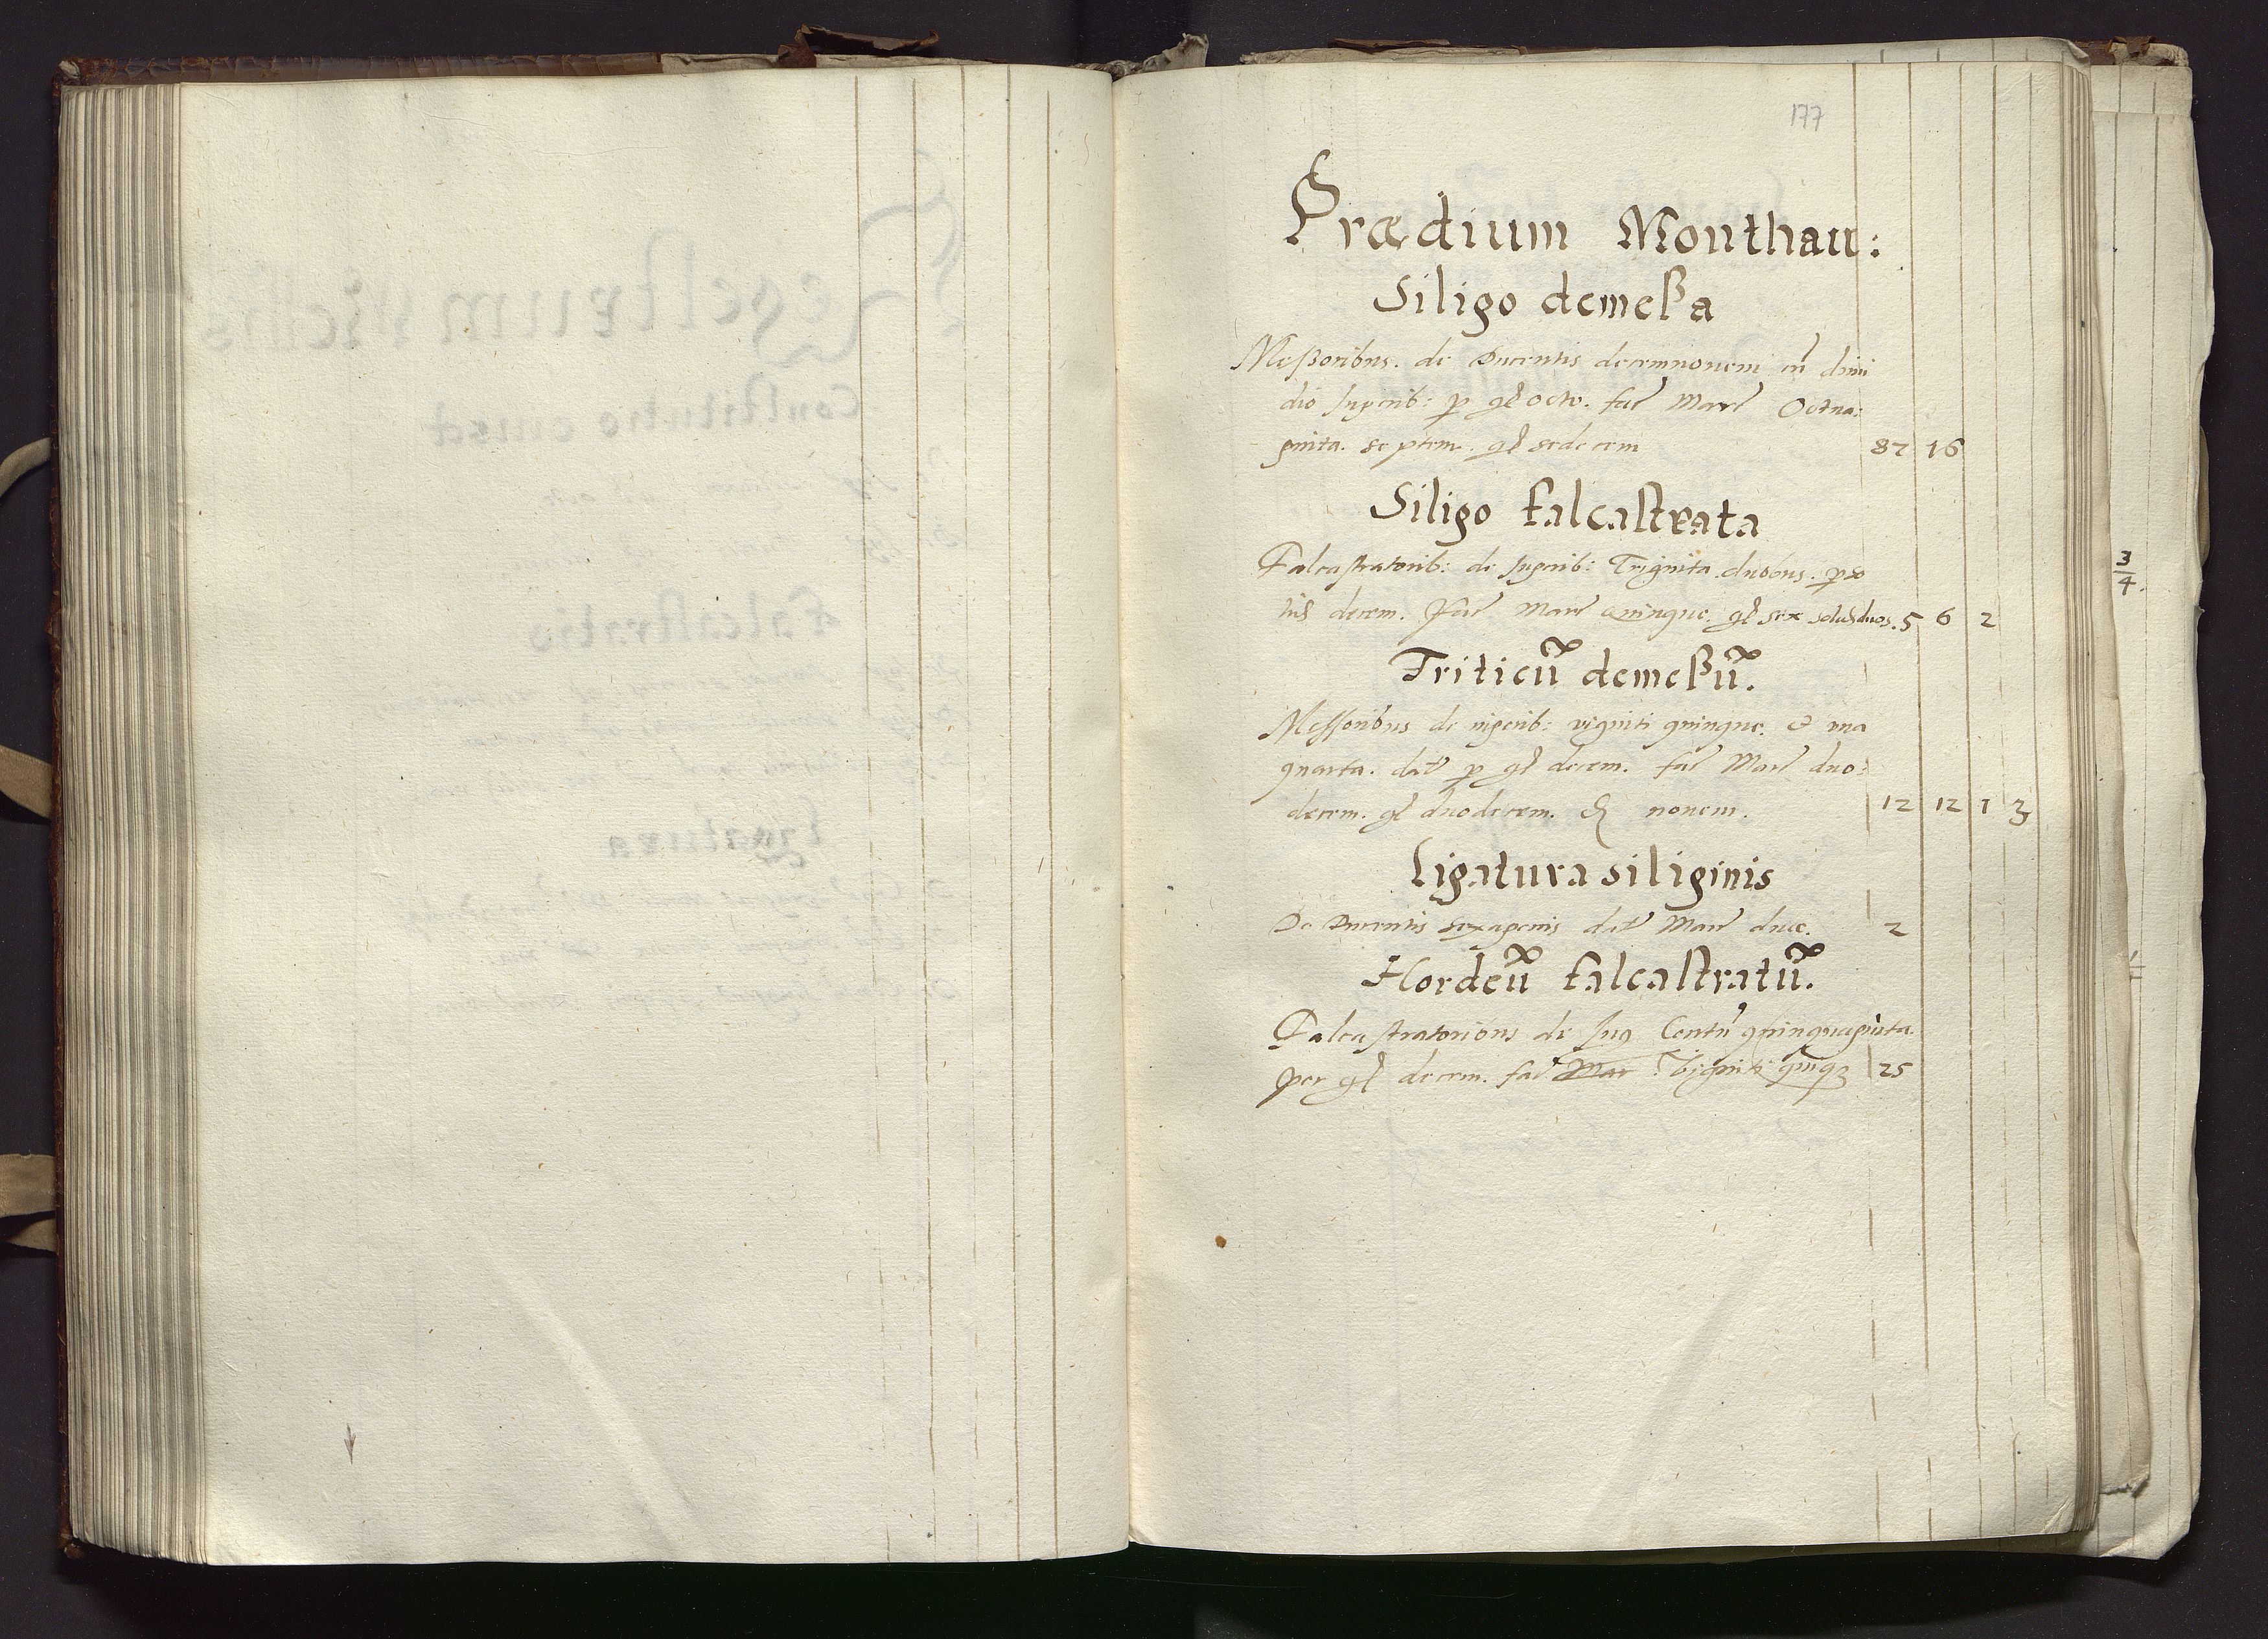 177
Prædium Monthau:
Siligo demeßa
Meßoribus. de Ducentis decemnovem cũ dimi
dio Jugerib: p gſ octo. faĉ Marĉ Octua:
ginta. septem. gſ sedecem 87 16
Siligo falcaſtrata
Falcaſtratorib: de Jugerib: Triginta duobus. pro
decem. Faĉ Marĉ Quinque. gſ sex solid duos. 5 6 2
Triticũ demeßũ.
Meſſoribus de iugerib: viginti quinque. et una
quarta. dat p gſ decem. faĉ Marĉ duo:
decem. gſ duodecem. ₰ novem. 12 12 1 3
Ligatura siliginis
De Ducentis sexagenis dat Marĉ duæ. 2
Hordeũ falcaſtratũ.
Falcaſtratoribus de Jug Centũ quinquaginta.
per gſ decem. faĉ Mar Viginti quinq 25
3/4